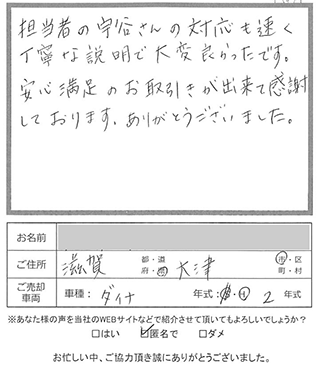 担当者の宇谷さんの対応も速く
丁寧な説明で大変良かったです。
安心満足のお取引きが出来て感謝
しております、ありがとうございました。
お名前
ご住所 滋賀 都・道・府・県 大津 市・区・町・村
ご売却車両 車種：ダイナ 年式：・H 2 年式
※あなた様の声を当社のWEBサイトなどで紹介させて頂いてもよろしいでしょうか？
□はい ☑匿名で □ダメ
お忙しい中、ご協力頂き誠にありがとうございました。